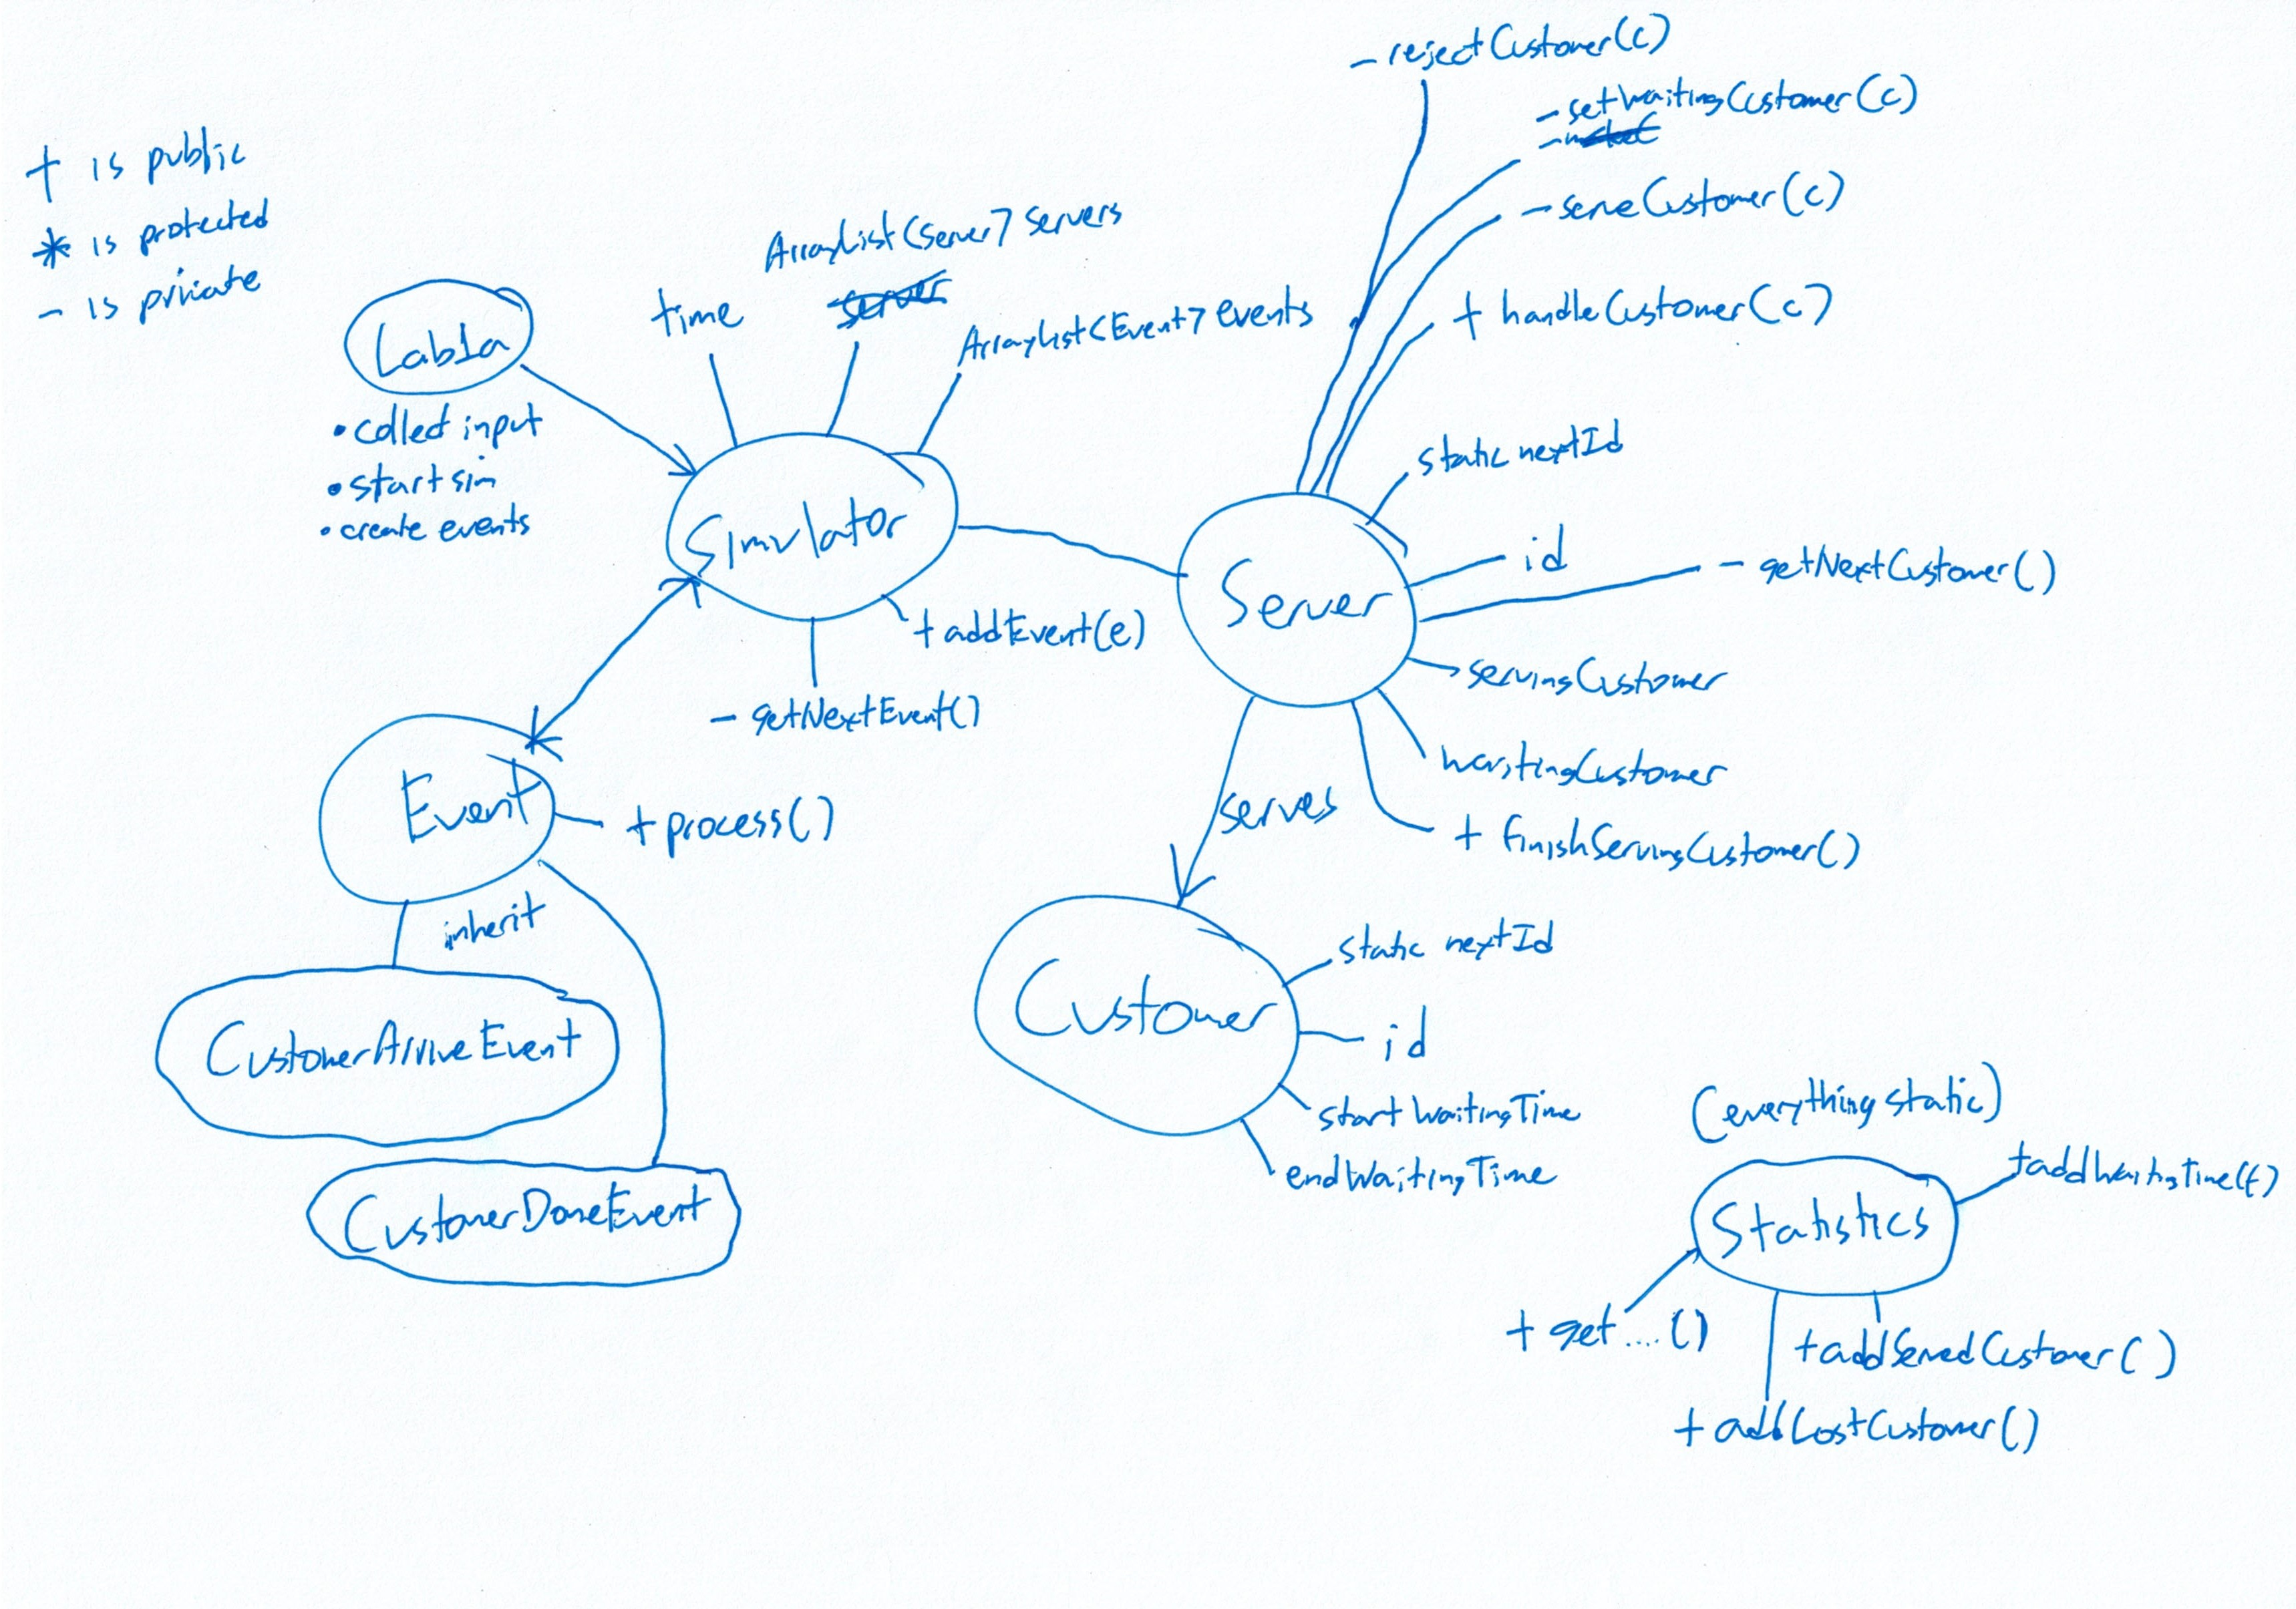 + is public
* is protected
- is private
Lab1a
• collect input
• start sim
• create events
time
ArrayList<Server> servers
server
ArrayList<Event> events
Simulator
+ addEvent(e)
- getNextEvent()
Event
+ process()
inherit
CustomerArriveEvent
CustomerDoneEvent
- rejectCustomer(c)
- setWaitingCustomer(c)
- serveCustomer(c)
+ handleCustomer(c)
static nextId
id
- getNextCustomer()
Server
servingCustomer
waitingCustomer
+ finishServingCustomer()
serves
Customer
static nextId
id
startWaitingTime
endWaitingTime
(everything static)
+ addWaitingTime(t)
Statistics
+ get....()
+ addServedCustomer()
+ addLostCustomer()